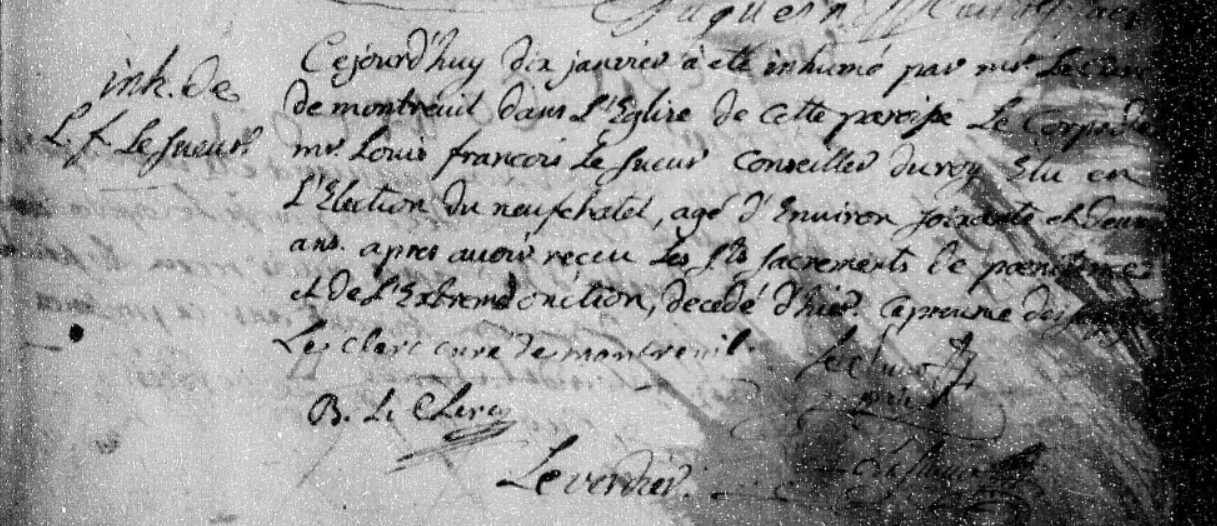 Cejourd'huy dix janvier a eté inhumé par mr. Le Curé
inh. de
de montreuil dans L'Eglise de cette paroisse Le Corps de
L. f. Le sueur.
mr. Louis francois Le sueur Conseiller du roy Elu en
L'Election du neufchatel, agé d'Environ soixante et douze
ans. apres avoir receu Les sts sacrements de poenitence
et de L'Extreme onction, decedé d'hier. Ce presence des
Le Clerc curé de montreuil.
B. Le Clerc
Le verdier.